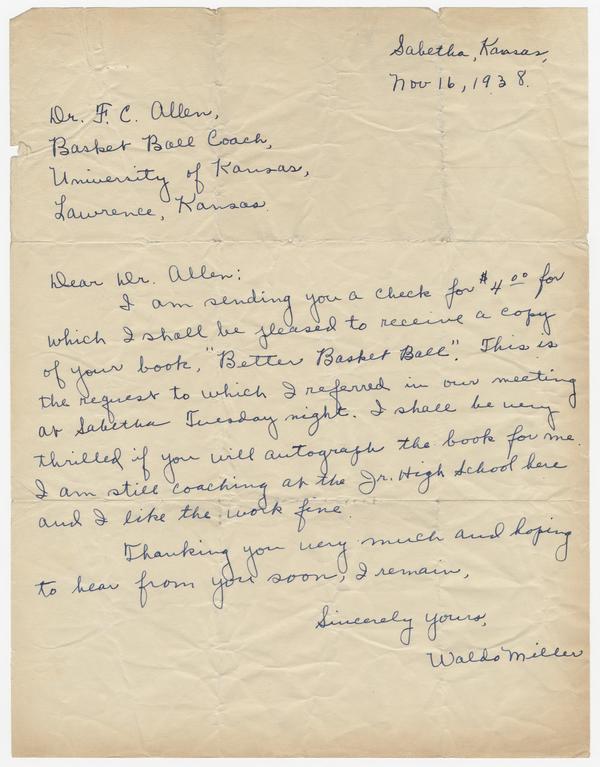 Sabetha, Kansas,
Nov 16, 1938.
Dr. F. C. Allen,
Basket Ball Coach,
University of Kansas,
Lawrence, Kansas.
Dear Dr. Allen:
I am sending you a check for $4.00 for
which I shall be pleased to receive a copy
of your book, "Better Basket Ball". This is
the request to which I referred in our meeting
at Sabetha Tuesday night. I shall be very
thrilled if you will autograph the book for me.
I am still coaching at the Jr. High School here
and I like the work fine.
Thanking you very much and hoping
to hear from you soon, I remain,
Sincerely yours,
Waldo Miller